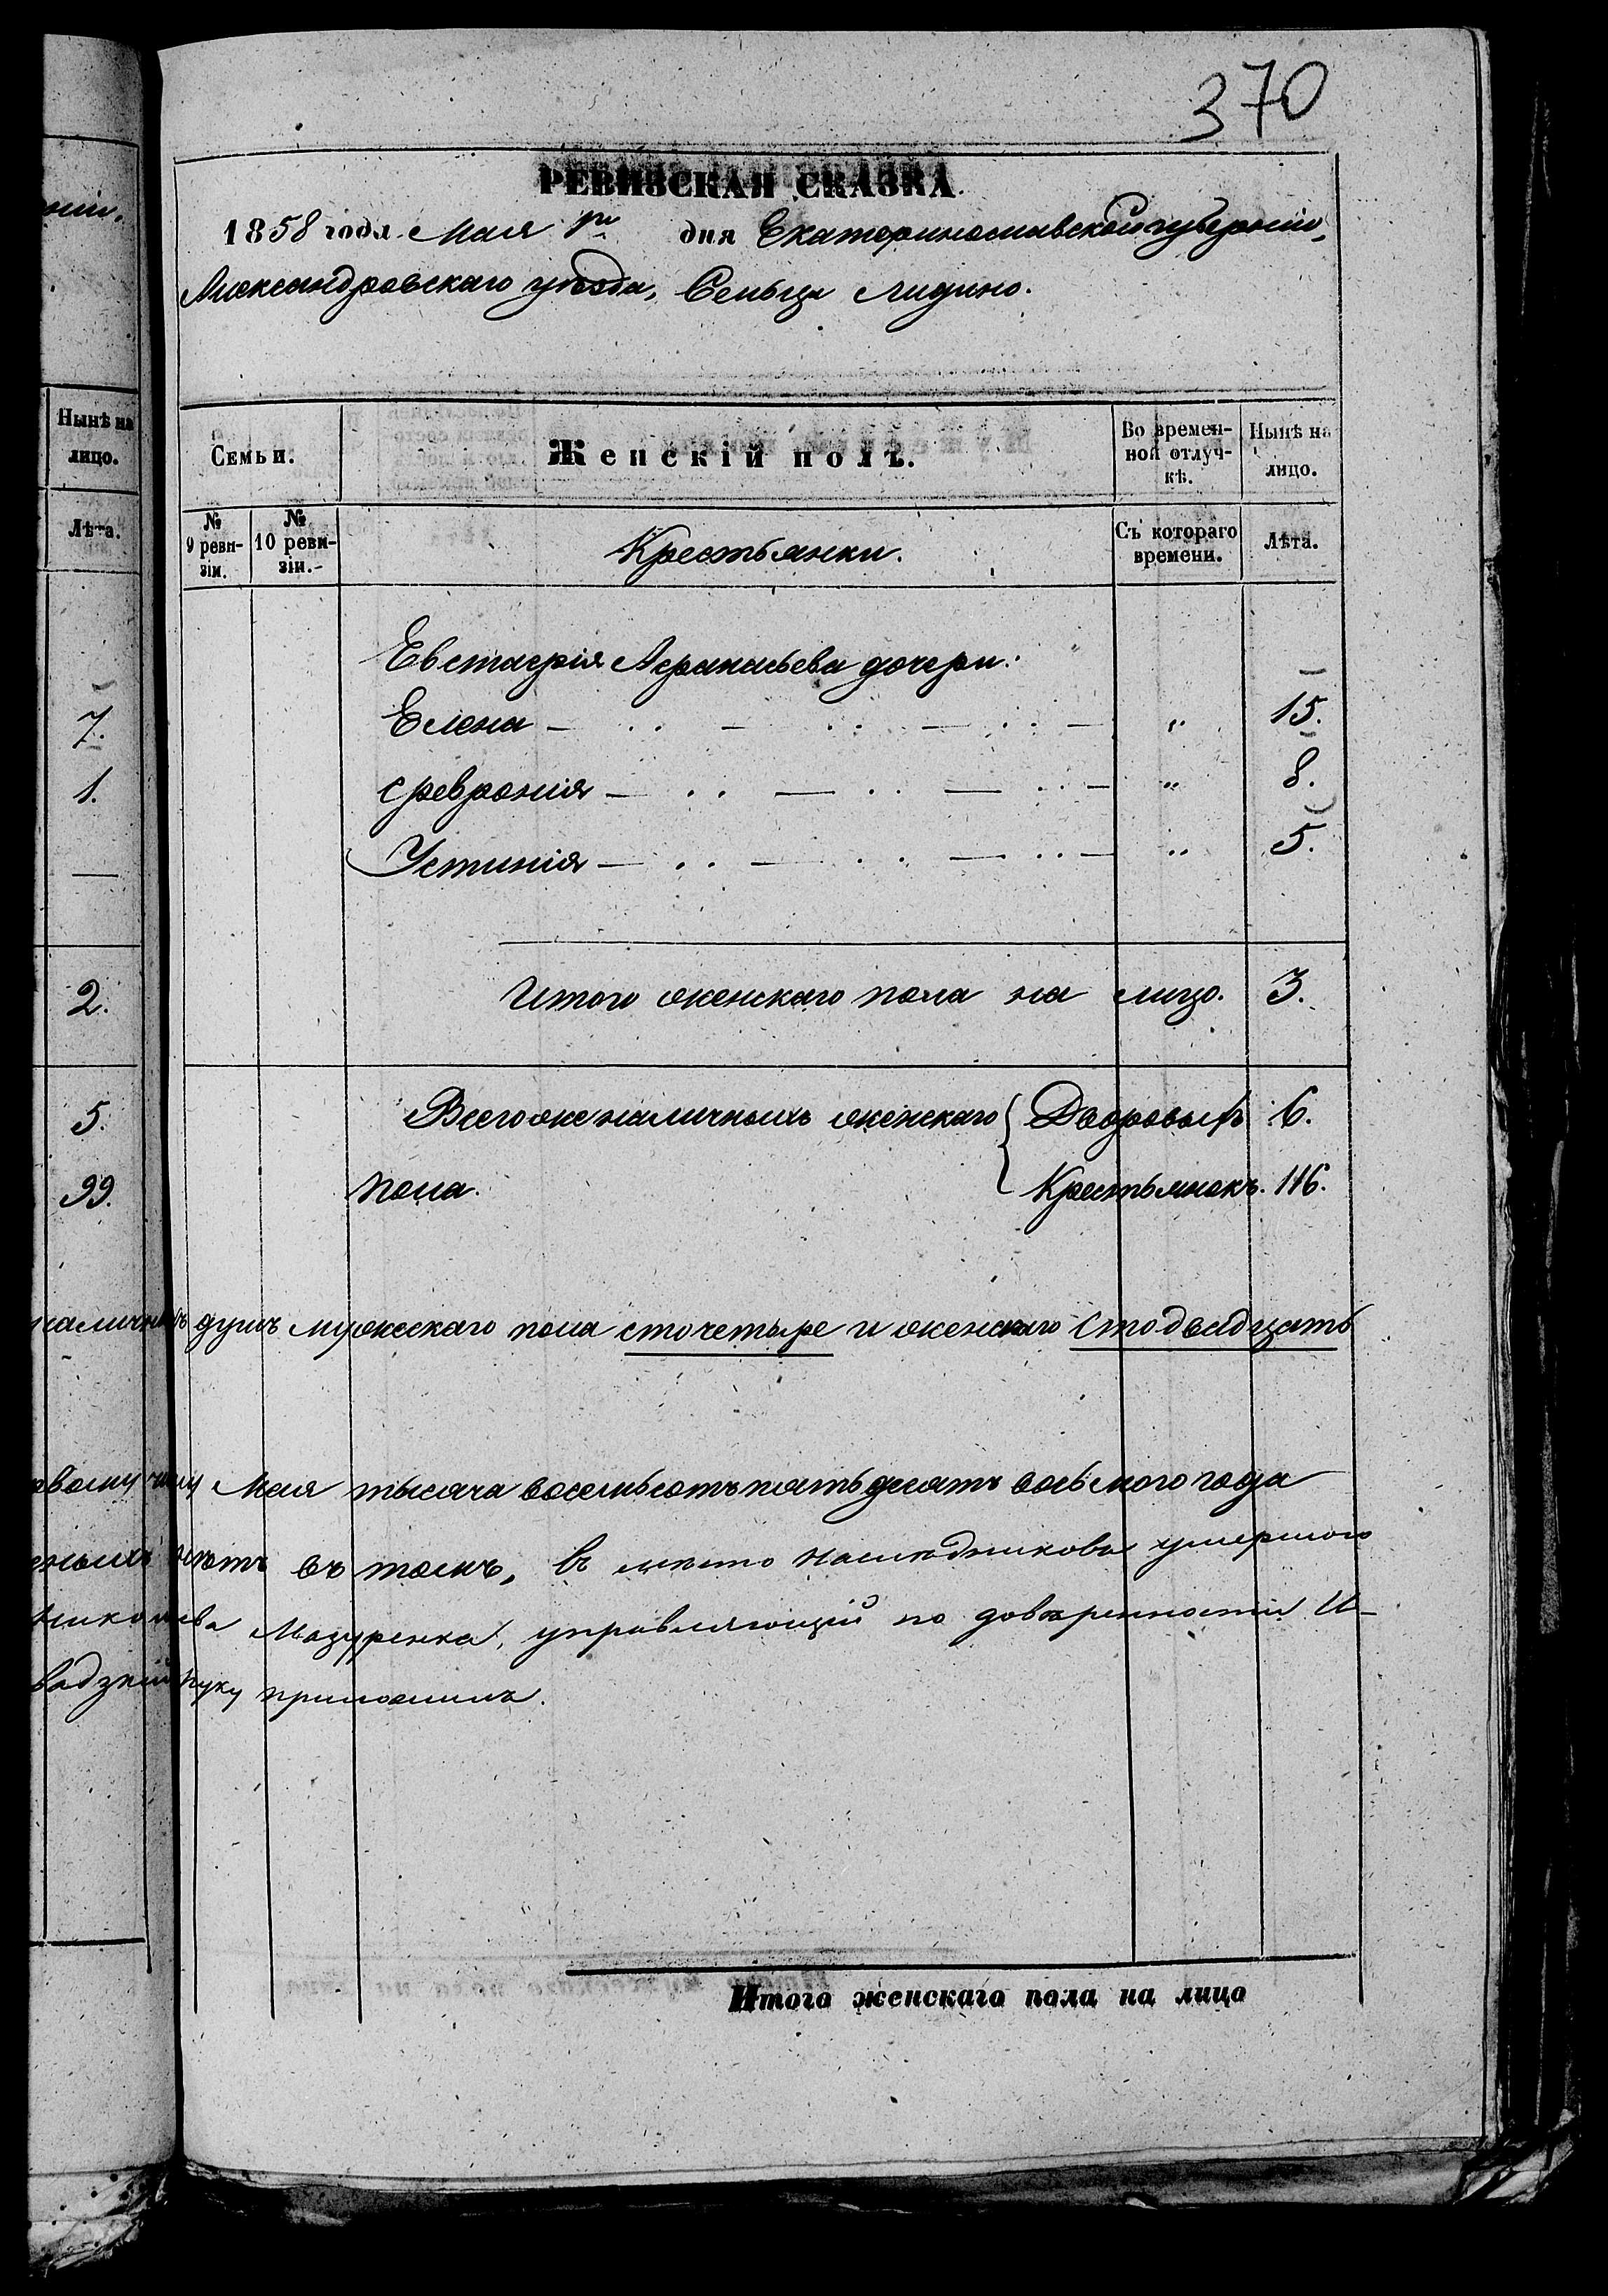 370
РЕВИЗСКАЯ СКАЗКА.
1858 года Мая 1го дня Екатеринославской губерніи,
Александровскаго уѣзда, Сельца Лидино.
Нынѣ на лицо.
Лѣта.
7.
1.
2.
5.
99.
Семьи.
Женскій полъ.
Во времен-
ной отлуч-
кѣ.
Нынѣ на
лицо.
№
9 реви-
зіи.
№
10 реви-
зіи.
Крестьянки.
Съ котораго
времени.
Лѣта.
Евстафія Афанасьева дочери:
Елена — .. — .. — .. — „ 15.
Феврония — .. — .. — .. — „ 8.
Устинія — .. — .. — .. — „ 5.
Итого женскаго пола на лицо. 3.
Всего же наличныхъ женскаго { Дворовыхъ 6.
пола. Крестьянокъ. 116.
наличныхъ душъ мужескаго пола сто четыре и женскаго сто двадцать
Мая тысяча восемьсотъ пятьдесятъ восьмого года
нѣтъ въ томъ, въ мѣсто наслѣдниковъ умершаго
Мазуренка, управляющій по довѣренности И-
руку приложилъ.
Итого женскаго пола на лицо